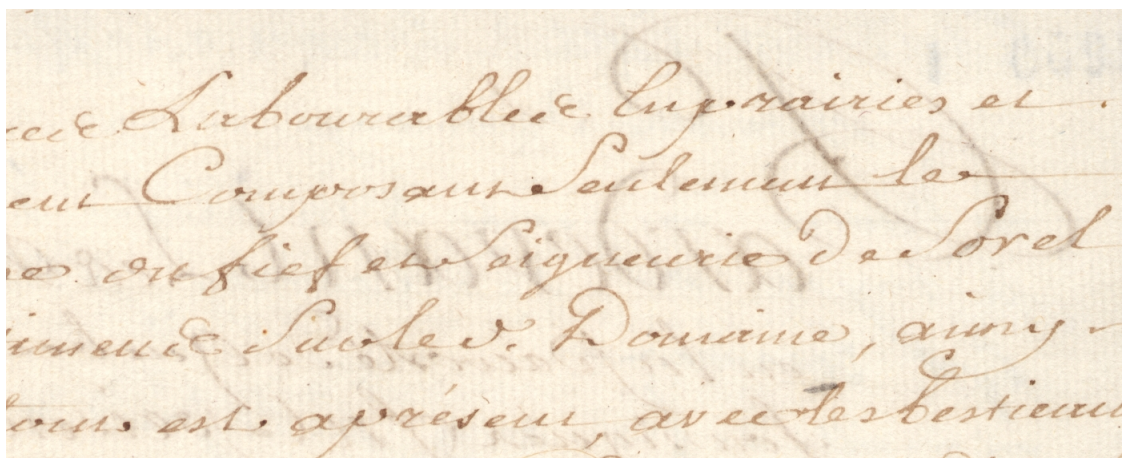 Labourables En prairies et
Composant Seulement le
du fief et Seigneurie De Sorel
Sur le d. Domaine, ainsy
tout est aprésent, avec les bestiaux